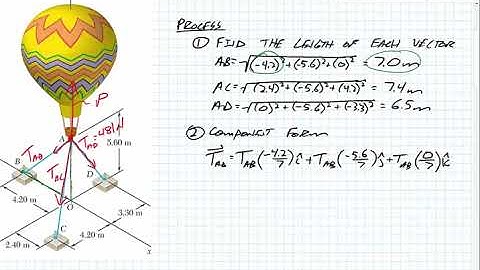 PROCESS
① FIND THE LENGTH OF EACH VECTOR
AB = √(-4.2)²+(-5.6)²+(0)² = 7.0m
AC = √(2.4)²+(-5.6)²+(4.2)² = 7.4m
AD = √(0)²+(-5.6)²+(-3.3)² = 6.5m
② COMPONENT FORM
T_AB = T_AB(-4.2/7)î + T_AB(-5.6/7)ĵ + T_AB(0/7)k̂
P
T_AB
T_AD=481N
T_AC
A
5.60 m
B
D
O
4.20 m
3.30 m
2.40 m
4.20 m
C
x